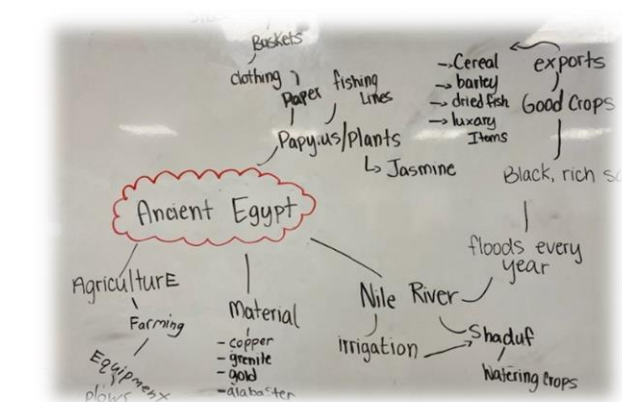 Baskets
clothing
Paper
fishing
Lines
Papy.us/Plants
↳ Jasmine
→ Cereal
→ barley
→ dried fish
→ luxary
Items
exports
Good Crops
Black, rich
floods every
year
Ancient Egypt
AgriculturE
Farming
Equipment
plows
Material
- copper
- grenite
- gold
- alabaster
Nile River
irrigation
Shaduf
Watering Crops